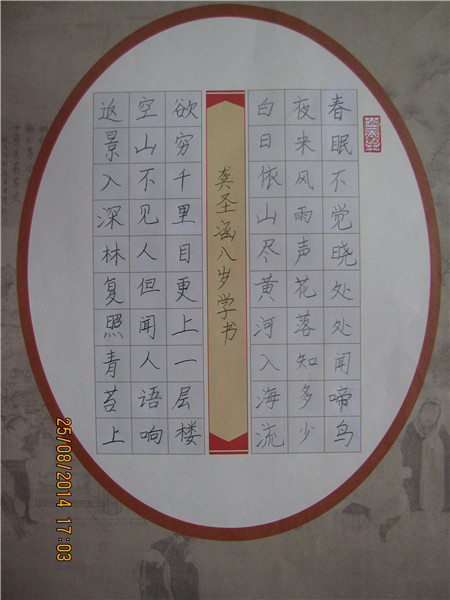 春眠不觉晓处处闻啼鸟
夜来风雨声花落知多少
白日依山尽黄河入海流
龚圣涵八岁学书
欲穷千里目更上一层楼
空山不见人但闻人语响
返景入深林复照青苔上
25/08/2014 17:03